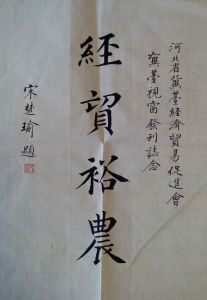 河北省冀臺經濟貿易促進會
冀臺視窗發刊誌念
經貿裕農
宋楚瑜題